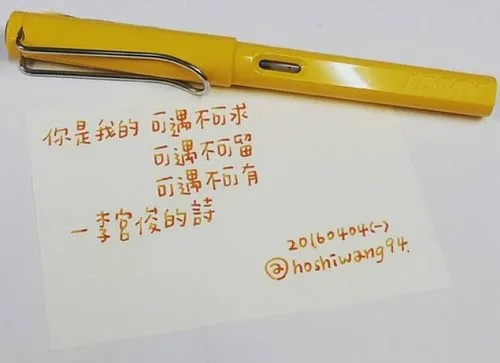 你是我的 可遇不可求
可遇不可留
可遇不可有
－李宮俊的詩
20160404(一)
@hoshiwang94.
LAMY